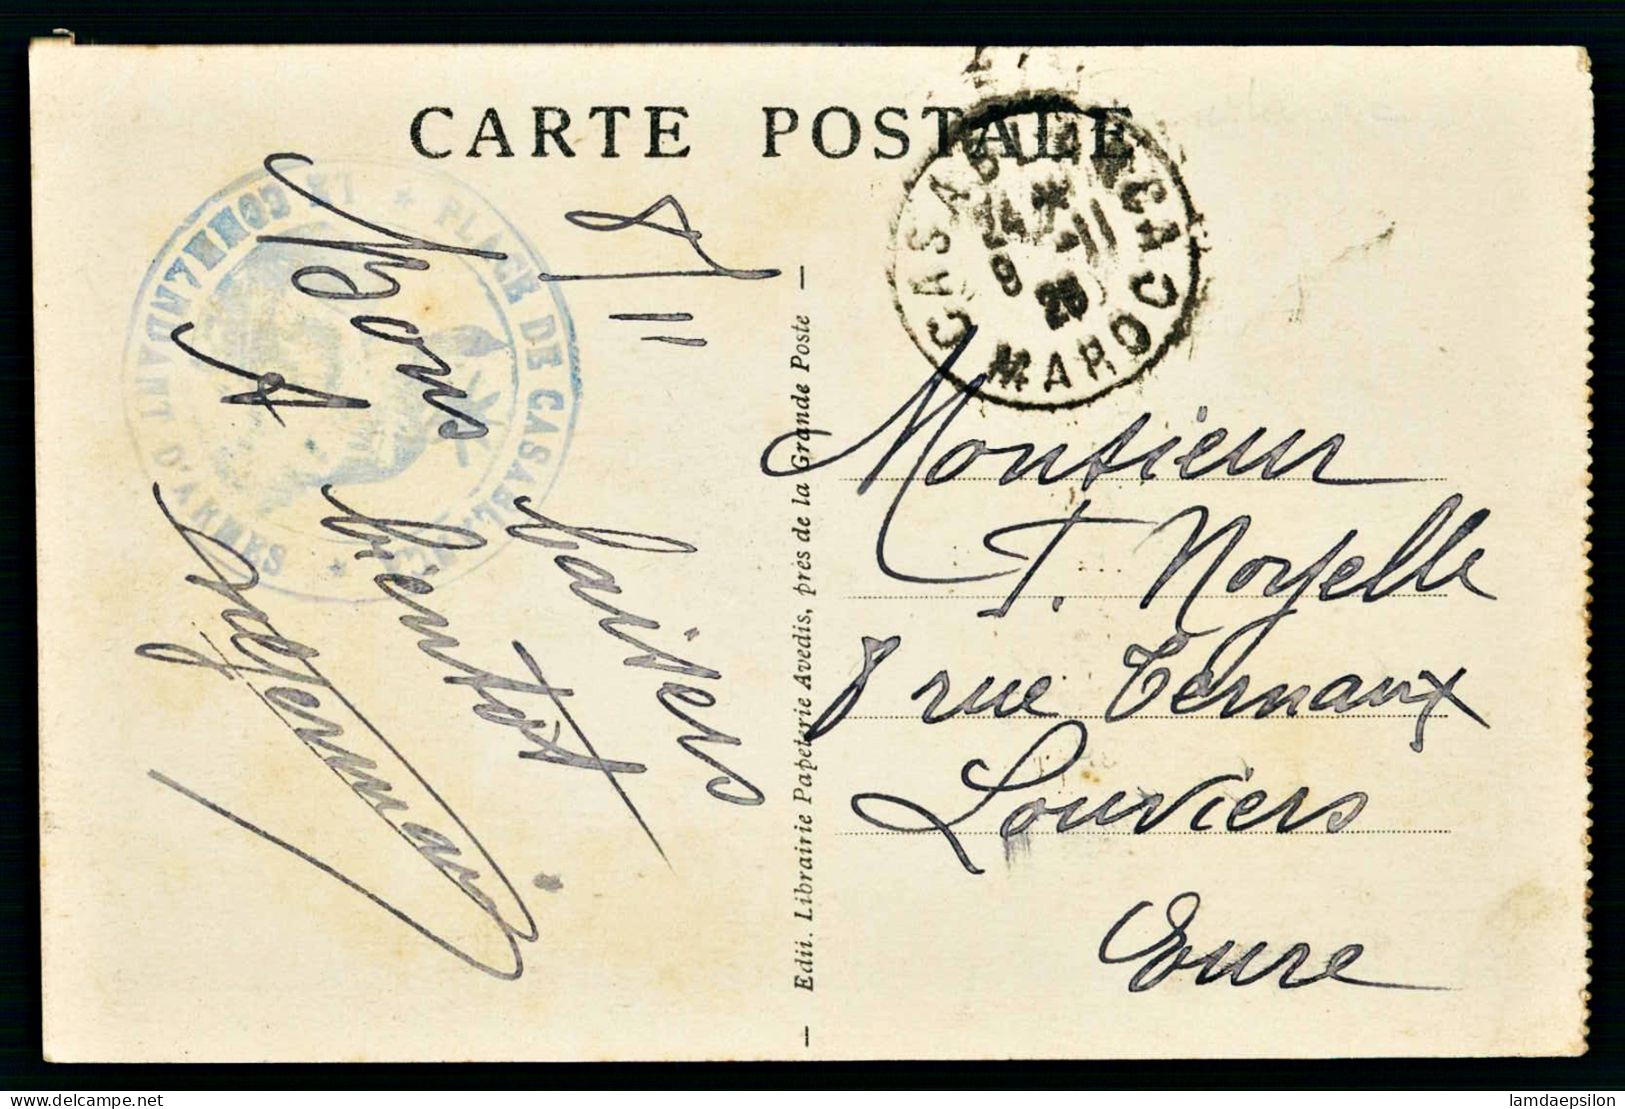 CARTE POSTALE
8/11
Bons baisers
A bientôt
Edii. Librairie Papeterie Avedis, près de la Grande Poste
CASABLANCA
24
9 -11
25
MAROC
LE COMMANDANT D'ARMES
★ PLACE DE CASABLANCA ★
Monsieur
T. Noyelle
8 rue Ternaux
Louviers
Eure
delcampe.net
lamdaepsilon